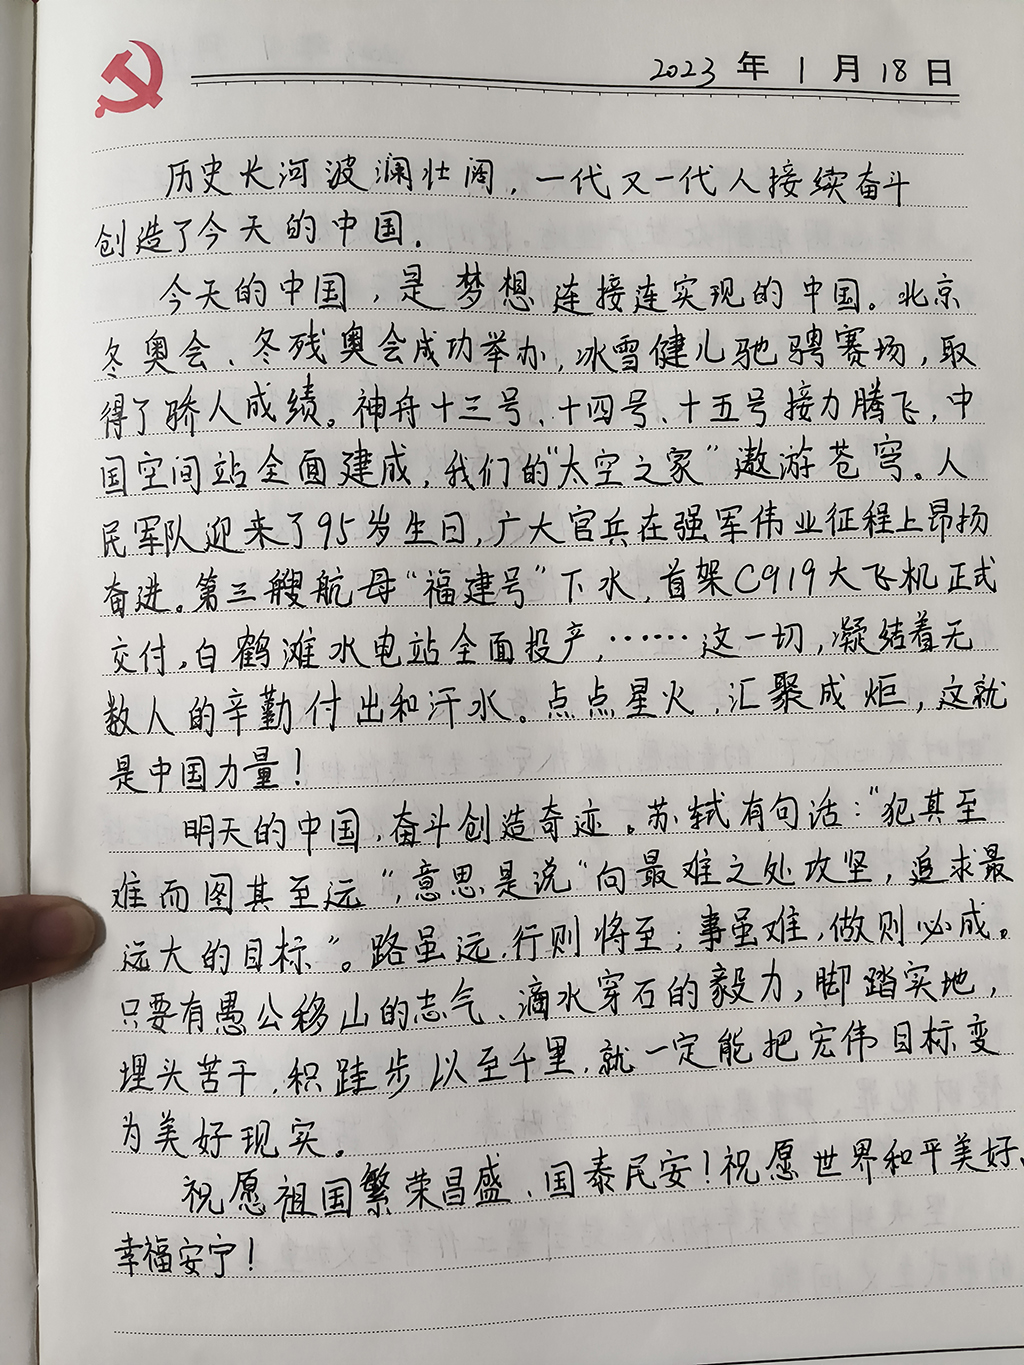 2023年1月18日
历史长河波澜壮阔，一代又一代人接续奋斗
创造了今天的中国。
今天的中国，是梦想连接连实现的中国。北京
冬奥会、冬残奥会成功举办，冰雪健儿驰骋赛场，取
得了骄人成绩。神舟十三号、十四号、十五号接力腾飞，中
国空间站全面建成，我们的“太空之家”遨游苍穹。人
民军队迎来了95岁生日，广大官兵在强军伟业征程上昂扬
奋进。第三艘航母“福建号”下水，首架C919大飞机正式
交付，白鹤滩水电站全面投产，……这一切，凝结着无
数人的辛勤付出和汗水。点点星火，汇聚成炬，这就
是中国力量！
明天的中国，奋斗创造奇迹。苏轼有句话：“犯其至
难而图其至远”，意思是说“向最难之处攻坚，追求最
远大的目标”。路虽远，行则将至；事虽难，做则必成。
只要有愚公移山的志气、滴水穿石的毅力，脚踏实地，
埋头苦干，积跬步以至千里，就一定能把宏伟目标变
为美好现实。
祝愿祖国繁荣昌盛、国泰民安！祝愿世界和平美好、
幸福安宁！